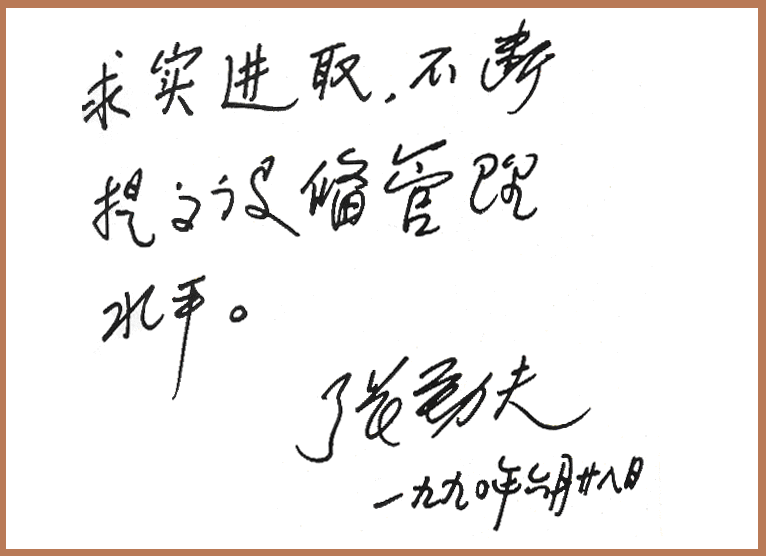 求实进取,不断
提高设备管理
水平。
张劲夫
一九九〇年六月廿八日